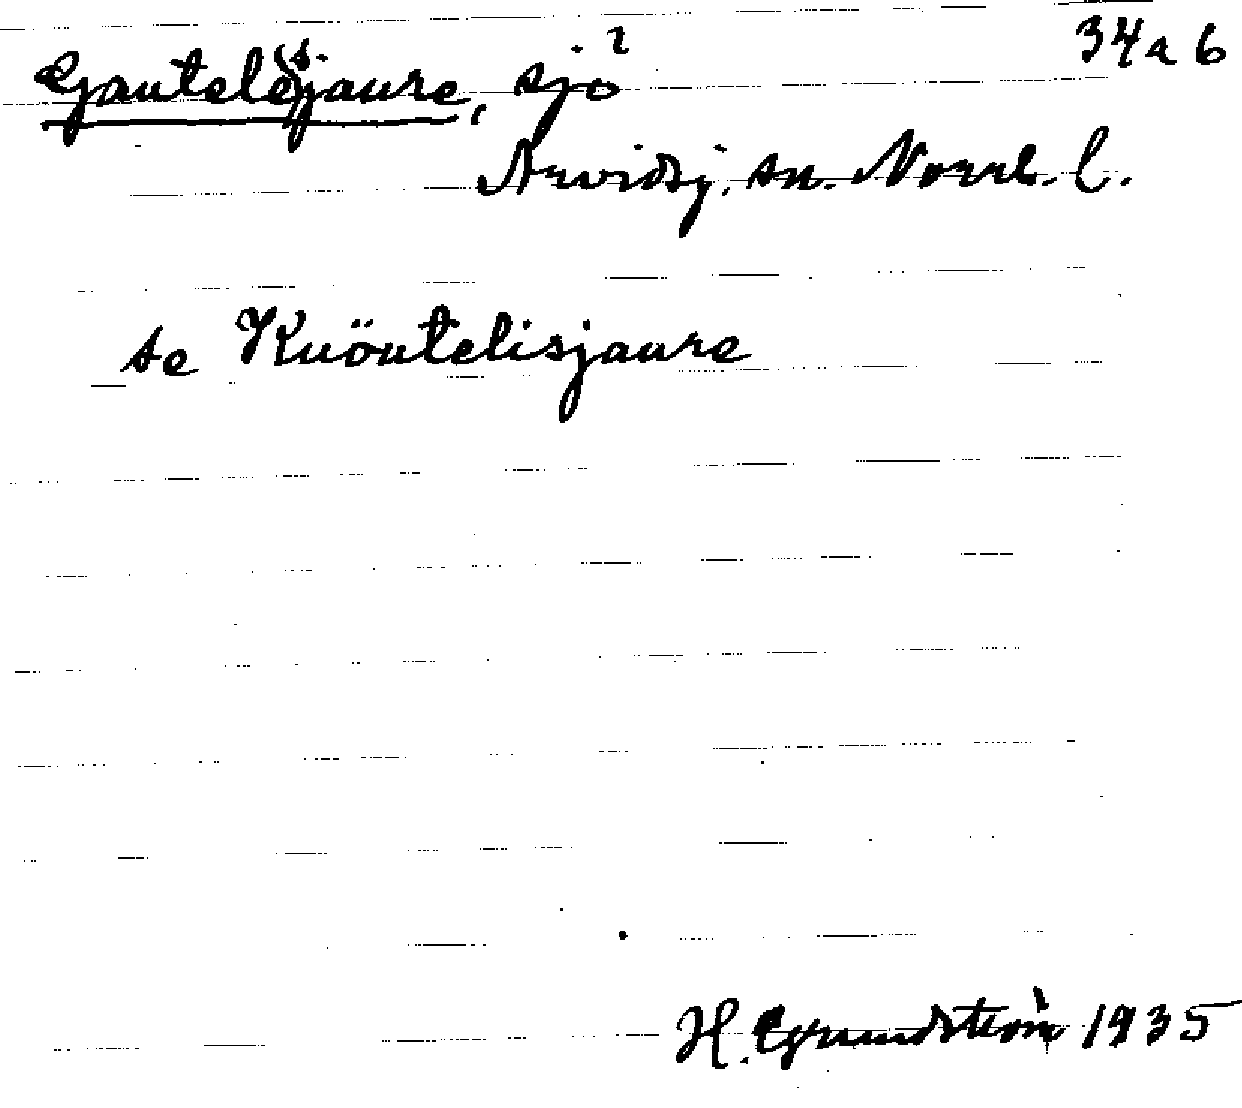 Gautelisjaure, sjö 34a6
Arvidsj. sn. Norrb. l.
se Kuöutelisjaure
H. Grundström 1935